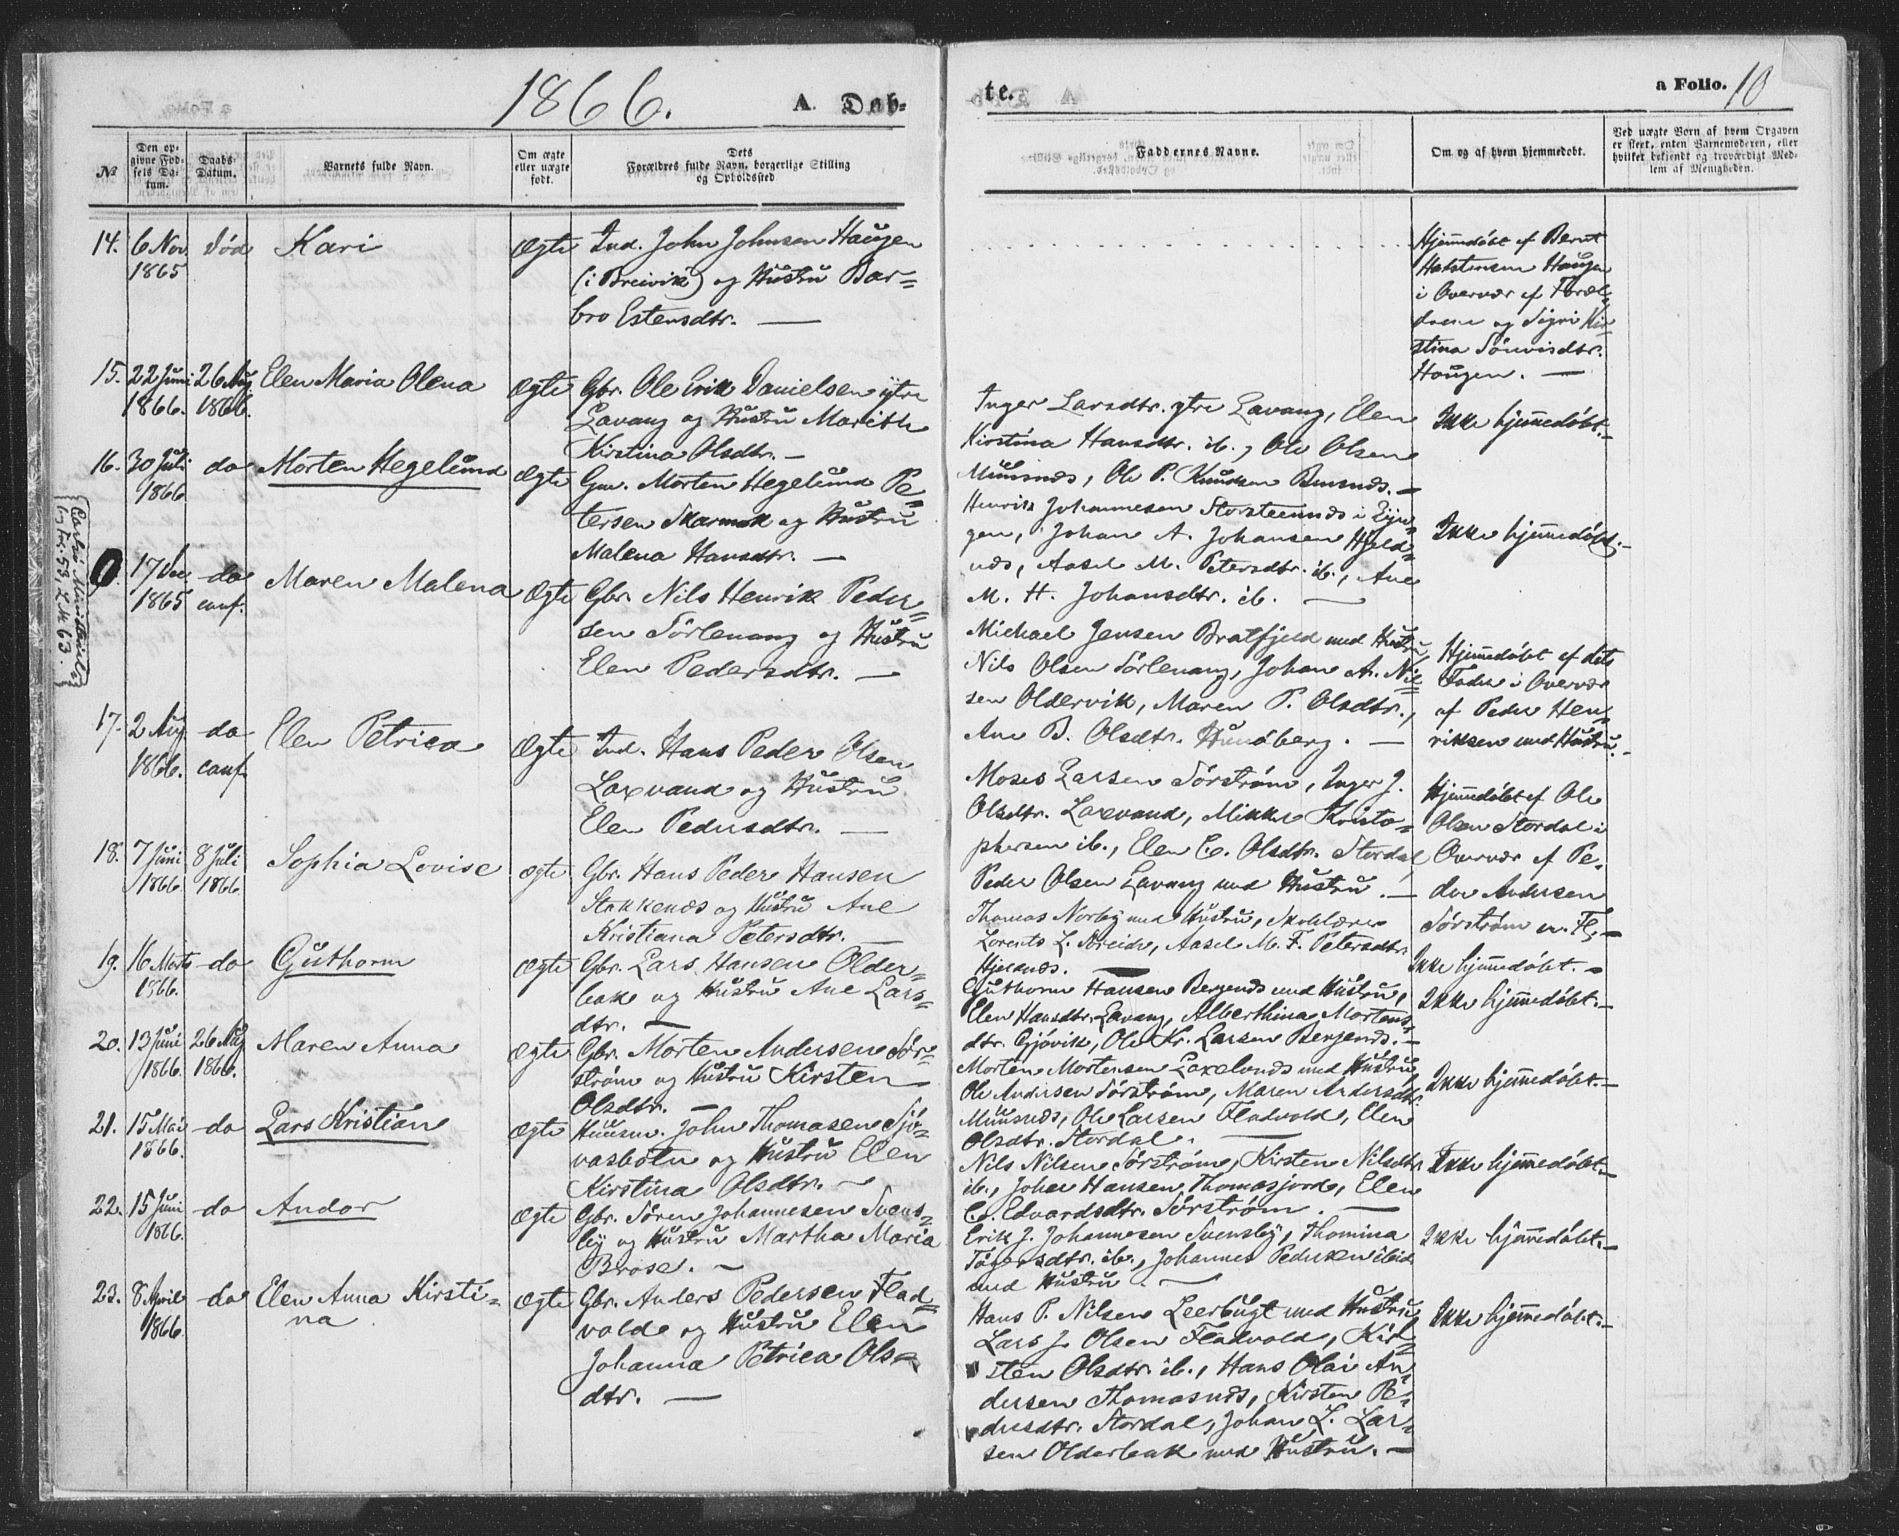 1866.
A. Døb-
te.
a Folio. 10
№
Den op-
givne Fød-
sels Da-
tum.
Daabs-
Datum.
Barnets fulde Navn.
Om ægte
eller uægte
født.
Dets
Forældres fulde Navn, borgerlige Stilling
og Opholdssted
Faddernes Navne.
Om og af hvem hjemmedøbt.
Ved uægte Børn af hvem Opgaven
er skeet, enten Barnemoderen, eller
hvilket bekjendt og troværdigt Med-
lem af Menigheden.
14. 6 Nov. død Kari Ægte Ind. John Johnsen Haugen
1865 (i Breivik) og Hustru Bar-
bro Estensdtr. —
Hjemmedøbt af Bernt
Halstensen Haugen
i Overvær af Foræl-
drene og Sigri Kir-
stina Sörensdtr.
Haugen. —
15. 22 Juni 26 Aug Elen Maria Olena Ægte Gbr. Ole Erik Danielsen ytre
1866. 1866. Lavang og Hustru Marith
Kirstina Olsdtr. —
Inger Larsdtr. ytre Lavang, Elen
Kirstina Hansdtr. ib., Ole Olsen
Muusnæs, Ole P. Knudsen Buusnæs. —
Ikke hjemmedøbt. —
16. 30 Juli do Morten Hegelund Ægte Gm. Morten Hegelund Pe-
1866 tersen Skarmok og Hustru
Malena Hansdtr. —
Henrik Johannesen Storsteennæs i Lyn-
gen, Johan A. Johansen Hjeld-
næs, Aasel M. Petersdtr. ib., Ane
M. H. Johansdtr. ib. —
Ikke hjemmedøbt. —
0 17 Dec. do Maren Malena Ægte Gbr. Nils Henrik Peder-
1865 conf. sen Sörlenang og Hustru
Elen Pedersdtr. —
Michael Jensen Bratfjeld med Hustru,
Nils Olsen Sörlenang, Johan A. Nil-
sen Oldervik, Maren P. Olsdtr.,
Ane B. Olsdtr. Hundberg. —
Hjemmedøbt af dets
Fader i Overvær
af Peder Hen-
riksen med Hustru. —
17. 2 Aug do Elen Petrica Ægte Ind. Hans Peder Olsen
1866. conf. Laxvand og Hustru
Elen Pedersdtr. —
Moses Larsen Sörström, Inger J.
Olsdtr. Laxvand, Mikkel Kristo-
phersen ib., Elen C. Olsdtr. Stordal,
Peder Olsen Lavang med Hustru. —
Hjemmedøbt af Ole
Olsen Stordal i
Overvær af Pe-
der Andersen
Sörström m. Fl. —
18. 7 Juni 8 Juli Sophia Lovise Ægte Gbr. Hans Peder Hansen
1866. 1866. Stakkenæs og Hustru Ane
Kristiana Petersdtr. —
Thomas Norbÿ med Hustru, Skolelærer
Lorents L. Breide, Aasel M. F. Petersdtr.
Hjelnæs. —
Ikke hjemmedøbt. —
19. 16 Marts do Guthorm Ægte Gbr. Lars Hansen Older-
1866. bak og Hustru Ane Lars-
dtr. —
Guthorm Hansen Bergenæs med Hustru,
Elen Hansdtr. Lavang, Alberthina Mortens-
dtr. Gjövik, Ole Kr. Larsen Bergenæs. —
Ikke hjemmedøbt. —
20. 13 Juni 26 Aug Maren Anna Ægte Gbr. Morten Andersen Sör-
1866. 1866. ström og Hustru Kirsten
Olsdtr. —
Morten Mortensen Laxelvnæs med Hustru,
Ole Andersen Sörström, Maren Andersdtr.
Muusnæs, Ole Larsen Fladvold, Elen
Olsdtr. Stordal. —
Ikke hjemmedøbt. —
21. 15 Mai do Lars Kristian Ægte Huusm. John Thomasen Sjö-
1866. vasbotn og Hustru Elen
Kirstina Olsdtr. —
Nils Nilsen Sörström, Kirsten Nilsdtr.
ib., Johan Hansen Thomasjord, Elen
C. Edvardsdtr. Sörström. —
Ikke hjemmedøbt. —
22. 15 Juni do Andor Ægte Gbr. Sören Johannesen Svens-
1866. by og Hustru Martha Maria
Brose. —
Erik J. Johannesen Svensby, Thomina
Törgersdtr. ib., Johannes Pedersen ibid
med Hustru. —
Ikke hjemmedøbt. —
23. 8 April do Elen Anna Kirsti- Ægte Gbr. Anders Pedersen Flad-
1866. na vold og Hustru Elen
Johanna Petrica Ols-
dtr. —
Hans P. Nilsen Leerbugt med Hustru,
Lars J. Olsen Fladvold, Kir-
sten Olsdtr. ib., Hans Olai An-
dersen Thomasnæs, Kirsten Pe-
dersdtr. Stordal, Johan L. Lar-
sen Olderbak med Hustru. —
Ikke hjemmedøbt. —